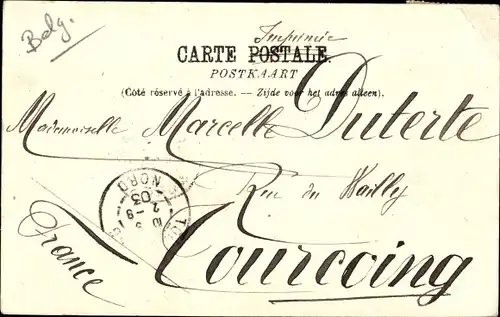 Belg.
Imprimée
CARTE POSTALE.
POSTKAART
(Côté réservé à l'adresse. — Zijde voor het adres alleen).
Mademoiselle Marcelle Duterte
Rue du Wailly
Tourcoing
France
NORD
03